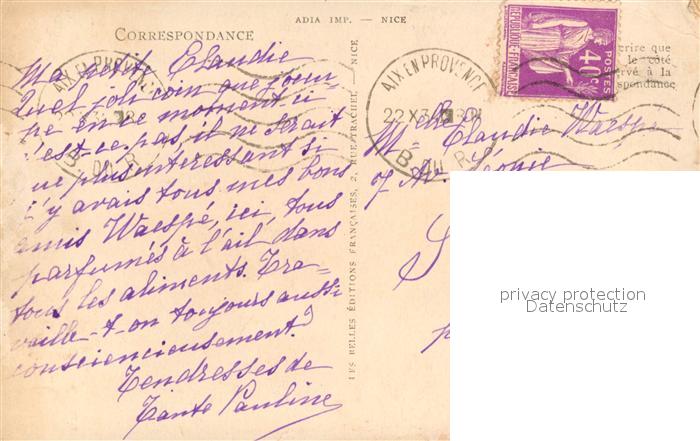 ADIA IMP. — NICE
CORRESPONDANCE
Ma petite Claudie
Quel joli coin que j'occu-
pe en ce moment-ci
n'est-ce pas, il ne serait
que plus intéressant si
j'y avais tous mes bons
amis Waespé, ici, tous
parfumés à l'ail dans
tous les aliments. Tra-
vaille-t-on toujours aussi
consciencieusement?
Tendresses de
Tante Pauline
LES BELLES ÉDITIONS FRANÇAISES, 2, RUE TRACHEL, NICE
AIX.EN PROVENCE
B. DU R.
AIX.EN PROVENCE
22 X
B. DU R.
REPUBLIQUE FRANÇAISE
40c
POSTES
crire que
le côté
rvé à la
spondance
Melle Claudie Waespé
7 Av. Léonie
privacy protection
Datenschutz